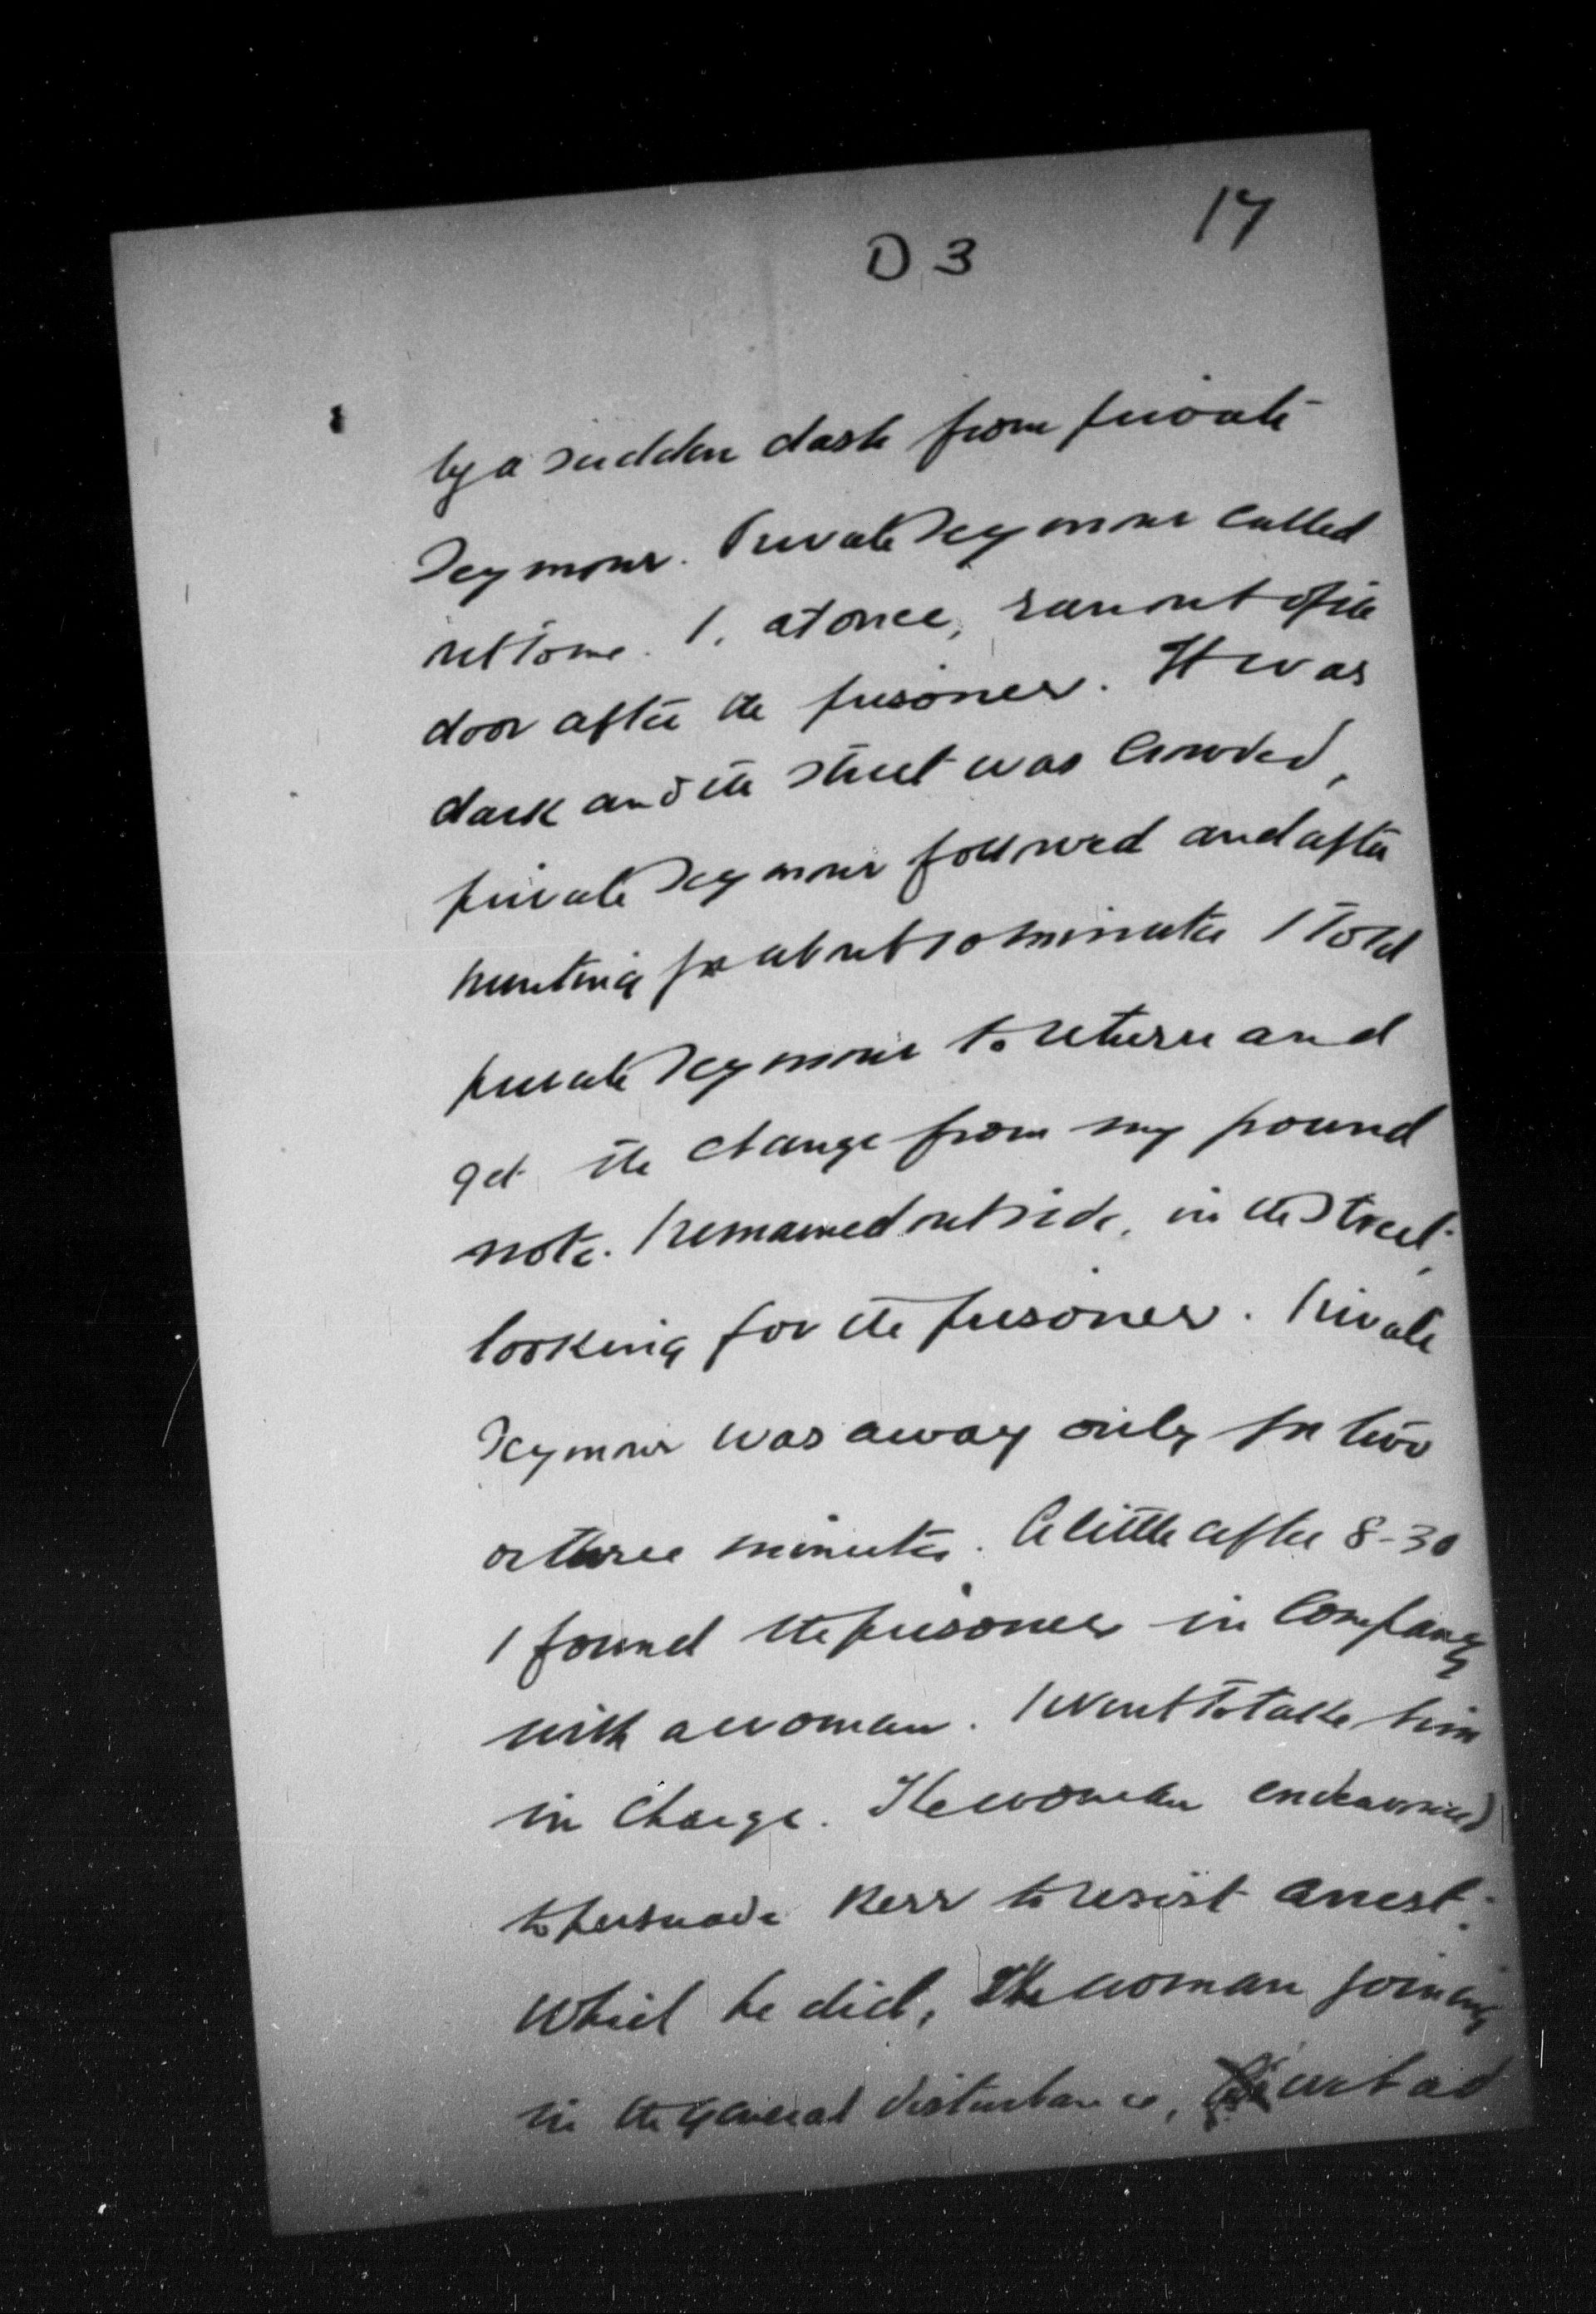 17
D 3
by a sudden dash from private
Seymour. Private Seymour called
out to me. I, at once, ran out of the
door after the prisoner. It was
dark and the street was crowded,
private Seymour followed and after
hunting for about 10 minutes I told
private Seymour to return and
get the change from my pound
note. I remained outside, in the street,
looking for the prisoner. Private
Seymour was away only for two
or three minutes. A little after 8-30
I found the prisoner in company
with a woman. I went to take him
in charge. The woman endeavoured
to persuade Kerr to resist arrest.
Which he did, the woman joining
in the general disturbance,